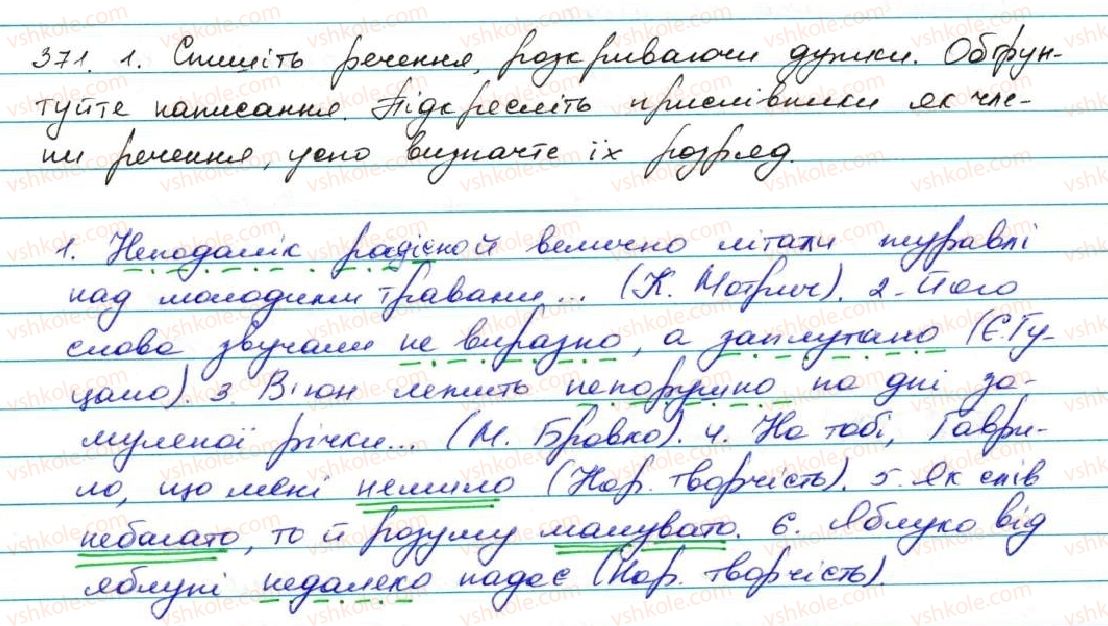 371. 1. Спишіть речення, розкриваючи дужки. Обґрун-
туйте написання. Підкресліть прислівники як чле-
ни речення, усно визначте їх розряд.
1. Неподалік радісной велично літали журавлі
над молодими травами... (К. Мотрич). 2. Його
слова звучали не виразно, а заплутано (Є. Гу-
цало). 3. В'юн лежить непорушно на дні за-
муленої річки... (М. Бровко). 4. На тобі, Гаври-
ло, що мені немило (Нар. творчість). 5. Як слів
небагато, то й розуму малувато. 6. Яблуко від
яблуні недалеко падає (Нар. творчість).